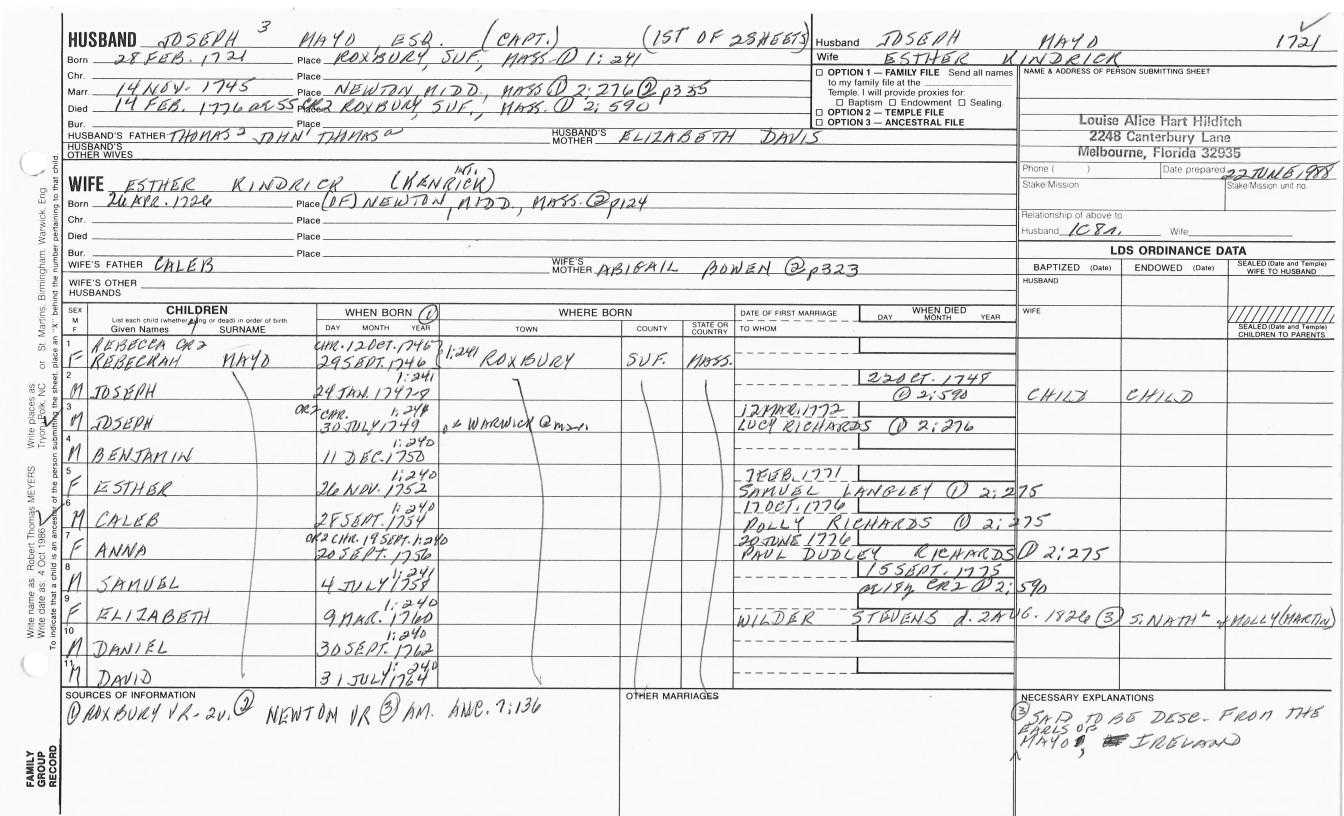 3
HUSBAND JOSEPH MAYO ESQ. (CAPT.) (1ST OF 2 SHEETS)
Born 28 FEB. 1721 Place ROXBURY, SUF., MASS. ① 1:241
Chr. Place
Marr. 14 NOV. 1745 Place NEWTON, MIDD., MASS ① 2:276 ② p335
Died 14 FEB. 1776 ae 55 CR2 Place ROXBURY, SUF., MASS. ① 2:590
Bur. Place
HUSBAND'S FATHER THOMAS² JOHN¹ THOMASᵃ HUSBAND'S MOTHER ELIZABETH DAVIS
HUSBAND'S OTHER WIVES
INT.
WIFE ESTHER KINDRICK (KENRICK)
Born 26 APR. 1726 Place (OF) NEWTON, MIDD., MASS. ② p124
Chr. Place
Died Place
Bur. Place
WIFE'S FATHER CALEB WIFE'S MOTHER ABIGAIL BOWEN ② p323
WIFE'S OTHER HUSBANDS
Husband JOSEPH MAYO 1721
Wife ESTHER KINDRICK
☐ OPTION 1 — FAMILY FILE Send all names
to my family file at the
Temple. I will provide proxies for:
☐ Baptism ☐ Endowment ☐ Sealing.
☐ OPTION 2 — TEMPLE FILE
☐ OPTION 3 — ANCESTRAL FILE
NAME & ADDRESS OF PERSON SUBMITTING SHEET
Louise Alice Hart Hilditch
2248 Canterbury Lane
Melbourne, Florida 32935
Phone ( ) Date prepared 22 JUNE, 1988
Stake/Mission Stake/Mission unit no.
Relationship of above to
Husband 1C8r. Wife
LDS ORDINANCE DATA
BAPTIZED (Date) ENDOWED (Date) SEALED (Date and Temple) WIFE TO HUSBAND
HUSBAND
WIFE
SEALED (Date and Temple) CHILDREN TO PARENTS
SEX M F
CHILDREN
List each child (whether living or dead) in order of birth
Given Names 4 SURNAME
WHEN BORN ①
DAY MONTH YEAR
WHERE BORN
TOWN COUNTY STATE OR COUNTRY
DATE OF FIRST MARRIAGE
TO WHOM
WHEN DIED
DAY MONTH YEAR
1 REBECCA CR2 CHR. 12 OCT. 1746
F REBECKAH MAYO 29 SEPT. 1746 1:241 ROXBURY SUF. MASS.
2 1:241 22 OCT. 1748
M JOSEPH 24 JAN. 1747-8 ① 2:590 CHILD CHILD
3 CR2 CHR. 1:241 12 MAR. 1772
M JOSEPH 30 JULY 1749 of WARWICK @ m LUCY RICHARDS ① 2:276
4 1:240
M BENJAMIN 11 DEC. 1750
5 1:240 7 FEB. 1771
F ESTHER 26 NOV. 1752 SAMUEL LANGLEY ① 2:275
6 1:240 17 OCT. 1776
M CALEB 28 SEPT. 1754 POLLY RICHARDS ① 2:275
7 CR2 CHR. 19 SEPT. 1:240 20 JUNE 1776
F ANNA 20 SEPT. 1756 PAUL DUDLEY RICHARDS ① 2:275
8 1:241 15 SEPT. 1775
M SAMUEL 4 JULY 1758 ae 18y CR2 ① 2:590
9 1:240
F ELIZABETH 9 MAR. 1760 WILDER STEVENS d. 2 AUG. 1826 ③ S. NATHL & MOLLY (MARTIN)
10 1:240
M DANIEL 30 SEPT. 1762
11 1:240
M DAVID 31 JULY 1764
SOURCES OF INFORMATION
① ROXBURY VR - 2v. ② NEWTON VR ③ AM. ANC. 7:136
OTHER MARRIAGES
NECESSARY EXPLANATIONS
③ SAID TO BE DESC. FROM THE
EARLS OF
MAYO, IRELAND
Write name as: Robert Thomas MEYERS Write places as
Write date as: 4 Oct 1986 Tryon, Polk, NC or St. Martins, Birmingham, Warwick, Eng.
To indicate that a child is an ancestor of the person submitting the sheet, place an "X" behind the number pertaining to that child.
FAMILY
GROUP
RECORD